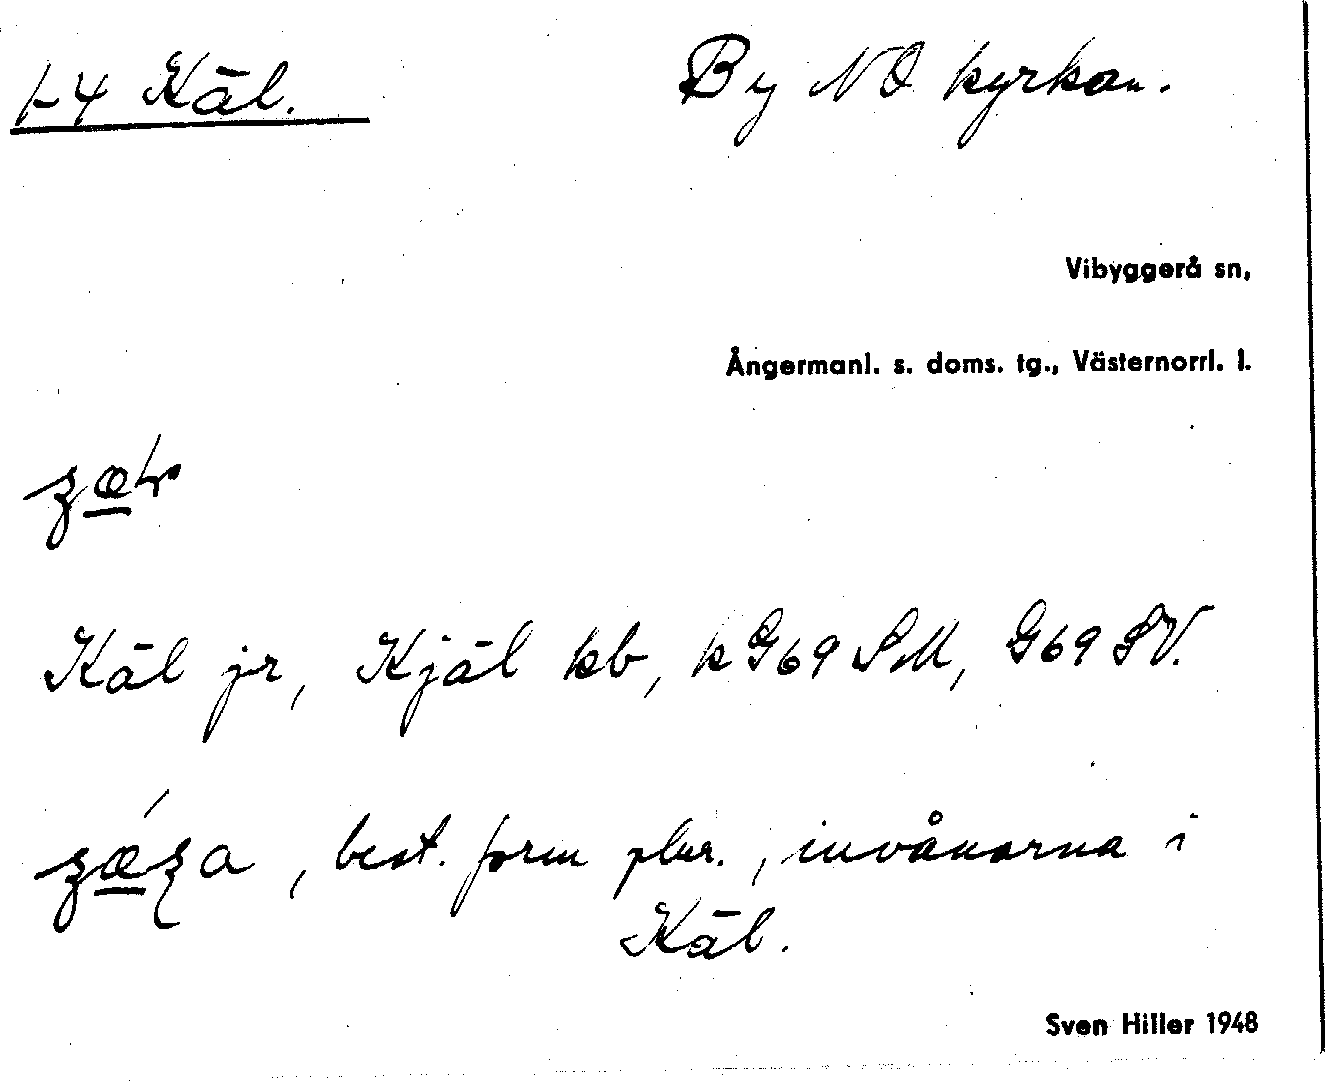 1-4 Käl.
By NO kyrkan.
Vibyggerå sn,
Ångermanl. s. doms. tg., Västernorrl. l.
Käl jr, Kjäl kb, k G69 SM, G69 SV.
, best. form plur., invånarna i
Käl.
Sven Hiller 1948